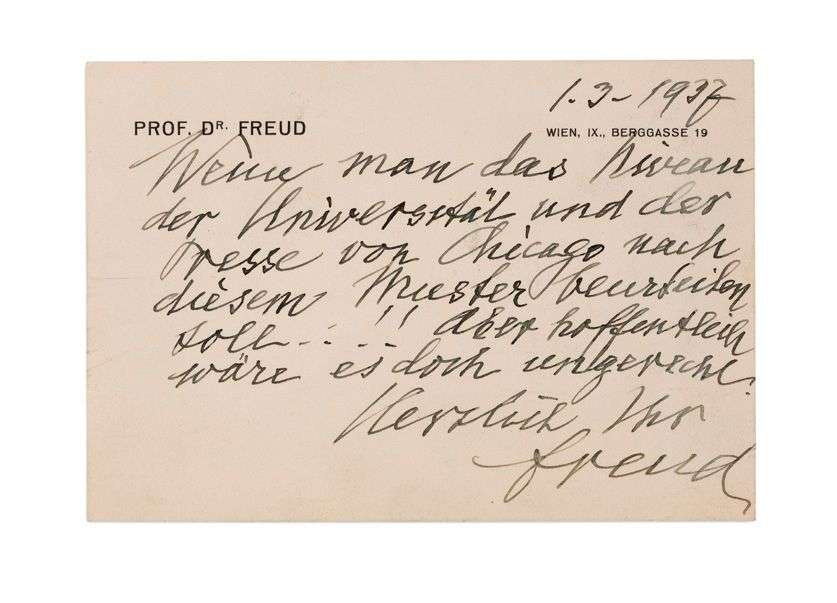 1.3-1937
PROF. DR. FREUD
WIEN, IX., BERGGASSE 19
Wenn man das Niveau
der Universität und der
Presse von Chicago nach
diesem Muster beurteilen
soll - . . . !! Aber hoffentlich
wäre es doch ungerecht.
Herzlich Ihr
Freud